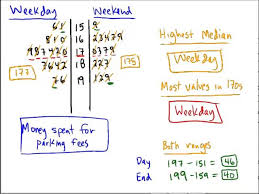 Weekday Weekend
61 15 9
16 23479
987420 17
7642 18
76 19 129
177
175
Money spent for
parking fees
Highest Median
Weekday
Most values in 170s
Weekday
Both ranges
Day 197-151 = 46
End 199-159 = 40